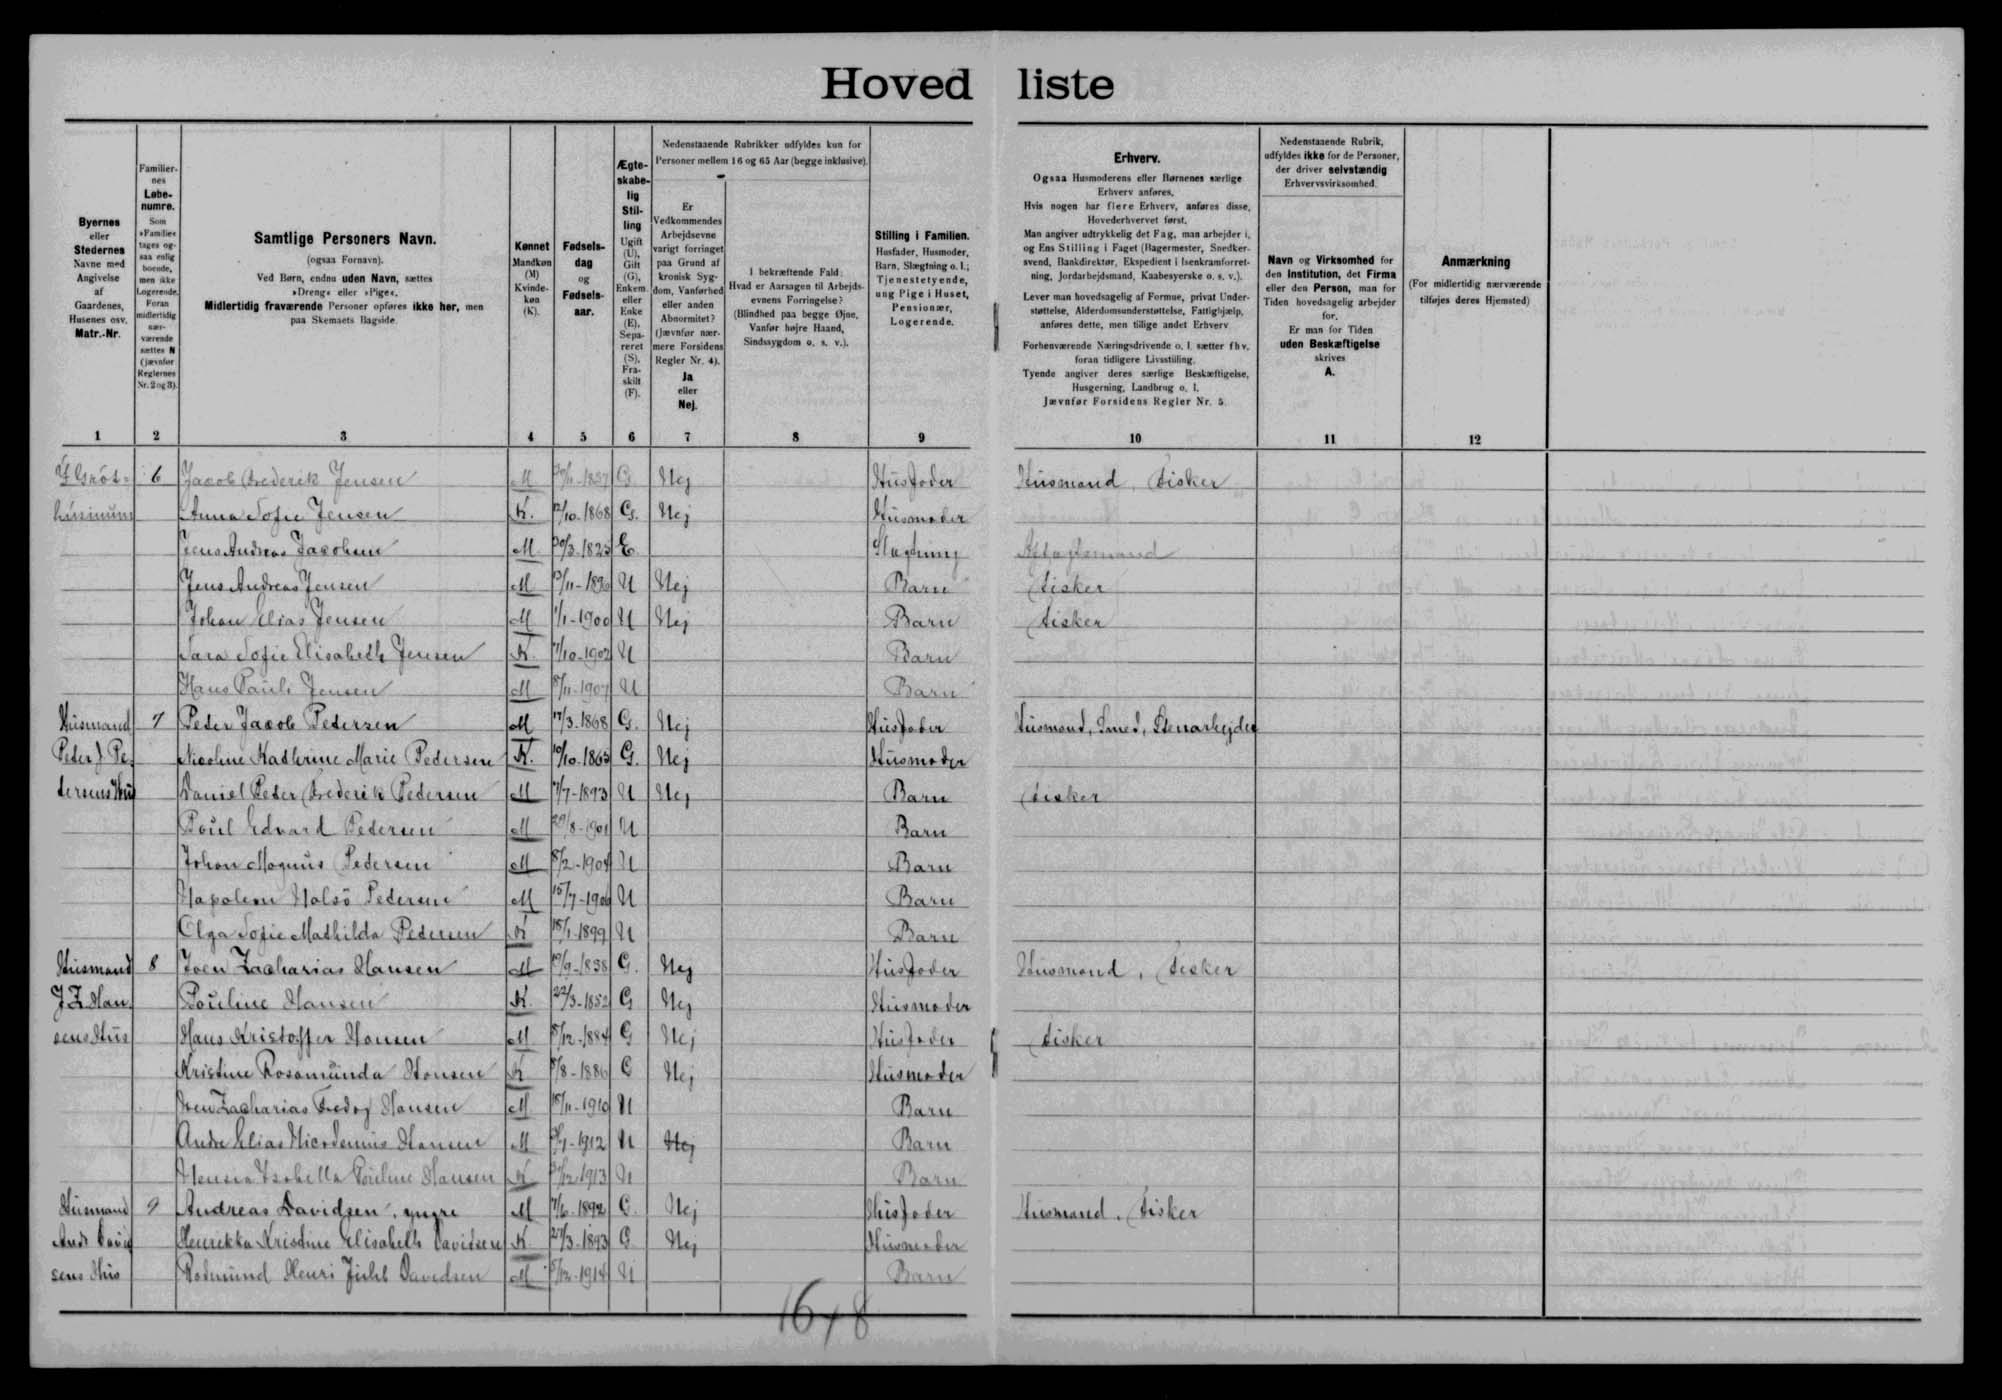 Hoved liste
Byernes
eller
Stedernes
Navne med
Angivelse
af
Gaardenes,
Husenes osv.
Matr.-Nr.
Familier-
nes
Løbe-
numre.
Som
»Familie«
tages og-
saa enlig
boende,
men ikke
Logerende.
Foran
midlertidig
nær-
værende
sættes N
(jævnfør
Reglernes
Nr. 2 og 3).
Samtlige Personers Navn.
(ogsaa Fornavn).
Ved Børn, endnu uden Navn, sættes
»Dreng« eller »Pige«.
Midlertidig fraværende Personer opføres ikke her, men
paa Skemaets Bagside.
Kønnet
Mandkøn
(M)
Kvinde-
køn
(K).
Fødsels-
dag
og
Fødsels-
aar.
Ægte-
skabe-
lig
Stil-
ling
Ugift
(U),
Gift
(G),
Enkem.
eller
Enke
(E),
Sepa-
reret
(S),
Fra-
skilt
(F).
Nedenstaaende Rubrikker udfyldes kun for
Personer mellem 16 og 65 Aar (begge inklusive).
Er
Vedkommendes
Arbejdsevne
varigt forringet
paa Grund af
kronisk Syg-
dom, Vanførhed
eller anden
Abnormitet?
(Jævnfør nær-
mere Forsidens
Regler Nr. 4).
Ja
eller
Nej.
I bekræftende Fald:
Hvad er Aarsagen til Arbejds-
evnens Forringelse?
(Blindhed paa begge Øjne,
Vanfør højre Haand,
Sindssygdom o. s. v.).
Stilling i Familien.
Husfader, Husmoder,
Barn, Slægtning o. l.;
Tjenestetyende,
ung Pige i Huset,
Pensionær,
Logerende.
Erhverv.
Ogsaa Husmoderens eller Børnenes særlige
Erhverv anføres.
Hvis nogen har flere Erhverv, anføres disse,
Hovederhvervet først.
Man angiver udtrykkelig det Fag, man arbejder i,
og Ens Stilling i Faget (Bagermester, Snedker-
svend, Bankdirektør, Ekspedient i Isenkramforret-
ning, Jordarbejdsmand, Kaabesyerske o. s. v.).
Lever man hovedsagelig af Formue, privat Under-
støttelse, Alderdomsunderstøttelse, Fattighjælp,
anføres dette, men tillige andet Erhverv
Forhenværende Næringsdrivende o. l. sætter fhv.
foran tidligere Livsstilling.
Tyende angiver deres særlige Beskæftigelse,
Husgerning, Landbrug o. l.
Jævnfør Forsidens Regler Nr. 5.
Nedenstaaende Rubrik,
udfyldes ikke for de Personer,
der driver selvstændig
Erhvervsvirksomhed.
Navn og Virksomhed for
den Institution, det Firma
eller den Person, man for
Tiden hovedsagelig arbejder
for.
Er man for Tiden
uden Beskæftigelse
skrives
A.
Anmærkning
(For midlertidig nærværende
tilføjes deres Hjemsted)
1 2 3 4 5 6 7 8 9 10 11 12
6 Jacob Frederik Jensen M G Nej Husfader Husmand, Fisker
Anna Sofie Jensen K. 12/10-1868 G. Nej Husmoder
Jens Andreas Jacobsen M 20/3-1823 E Slægtning Aftægtsmand
Jens Andreas Jensen M U Nej Barn Fisker
Johan Elias Jensen M 1/1-1900 U Nej Barn Fisker
Sara Sofie Elisabeth Jensen K. U Barn
Hans Pauli Jensen M 8/11-1907 U Barn
Husmand 7 Peder Jacob Pedersen M 17/3-1868 G. Nej Husfader Husmand, Smed, Stenarbejder
Peder J. Pe- Nicoline Kathrine Marie Pedersen K. 10/10-1863 G. Nej Husmoder
dersens Hus Daniel Peder Frederik Pedersen M U Nej Barn Fisker
Poul Edvard Pedersen M 29/8-1901 U Barn
Johan Magnus Pedersen M 8/2-1904 U Barn
Napoleon Nolsö Pedersen M 15/7-1906 U Barn
Olga Sofie Mathilda Pedersen K 18/1-1899 U Barn
Husmand 8 Joen Zacharias Hansen M 19/9-1838 G. Nej Husfader Husmand, Fisker
J Z Han- Pouline Hansen K. 22/3-1852 G Nej Husmoder
sens Hus Hans Kristoffer Hansen M 8/12-1884 G Nej Husfader Fisker
Kristine Rosamunda Hansen K 8/8-1886 G Nej Husmoder
Joen Zacharias Hansen M 18/11-1910 U Barn
Andre Elias Nicodemus Hansen M U Nej Barn
Isabella Pouline Hansen K U Barn
Husmand 9 Andreas Davidsen, yngre M 7/6-1892 G. Nej Husfader Husmand, Fisker
Henrikka Kristine Elisabeth Davidsen K. 27/3-1893 G Nej Husmoder
sens Hus Rosmund Henri Juhl Davidsen M U Barn
16+8